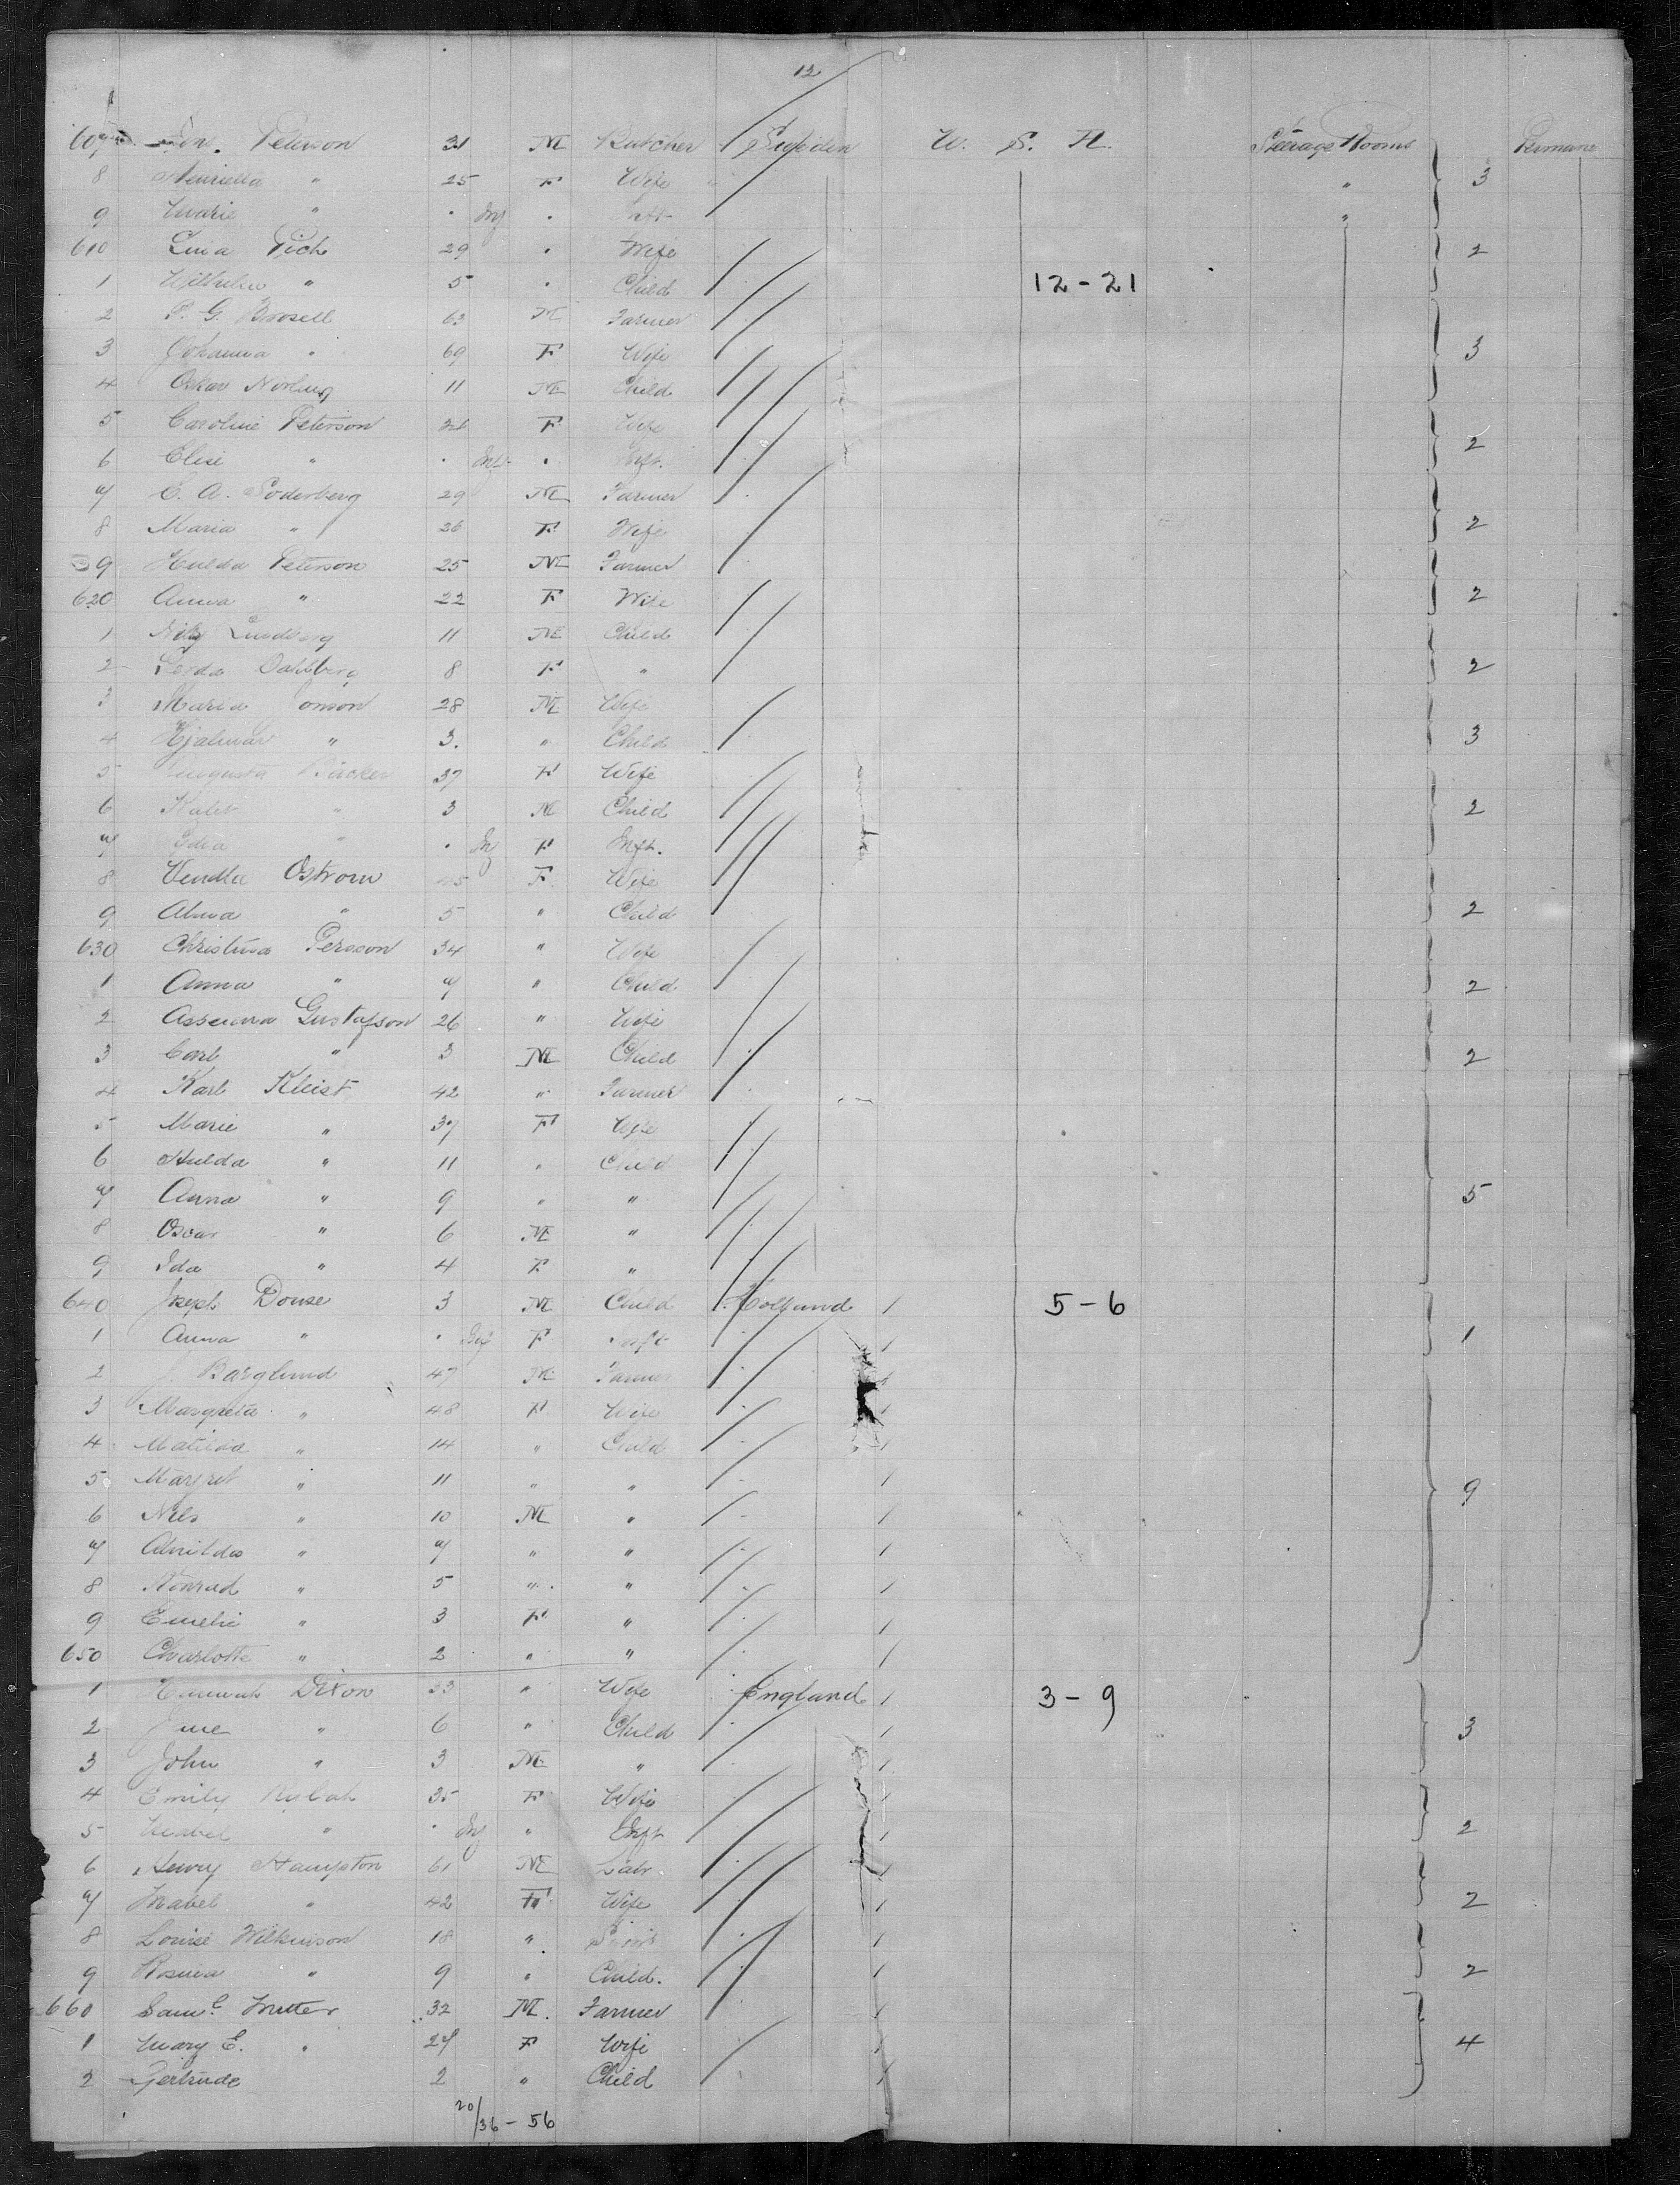 12
607 Peterson 31 M Butcher Sweden U. S. A. Steerage Rooms Permane
8 Henriella " 25 F Wife " 3
9 Marie " . Inf . Inft "
610 Lina Pich 29 . Wife 2
1 Wilhelm " 5 . Child 12-21
2 P. G. Brosell 63 M Farmer
3 Johanna " 69 F Wife 3
4 Oskar Norling 11 M Child
5 Caroline Peterson F Wife 2
6 Elise " . Inft . Inft.
7 C. A. Soderberg 29 M Farmer
8 Maria " 26 F Wife 2
9 Hulda Peterson 25 M Farmer
620 Anna " 22 F Wife 2
1 Lundberg 11 M Child
2 Gerda Dahlberg 8 F " 2
3 Maria onson 28 M Wife
4 Hjalmar " 3. " Child 3
5 Augusta Backer 37 F Wife
6 " 3 M Child 2
7 " . Inf F Inft.
8 Vendla Ostrom F. Wife
9 Alma " 5 " Child 2
630 Christina Persson 34 " Wife
1 Anna " 7 " Child 2
2 Gustafson 26 " Wife
3 Carl " 3 M Child 2
4 Karl Kleist 42 " Farmer
5 Marie " 37 F Wife
6 Hulda " 11 " Child
7 Anna " 9 " " 5
8 Oscar " 6 M "
9 Ida " 4 F "
640 Joseph Douse 3 M Child Holland 1 5-6
1 Anna " . Inf F Inft 1 1
2 Barglund 47 M Farmer 1
3 Margreta " 48 F Wife 1
4 Matilda " 14 " Child 1
5 Margret " 11 " " 1 9
6 Nels " 10 M " 1
7 " 7 " " 1
8 Konrad " 5 " " 1
9 Emelie " 3 F " 1
650 Charlotte " 2 " " 1
1 Hannah Dixon 33 " Wife England 1 3-9 "
2 Jane " 6 " Child 1 3
3 John " 3 M " 1
4 Emily 35 F Wife 1
5 " . Inf " Inft 1 2
6 Henry Hampton 61 M Labr 1
7 Mabel " 42 F Wife 1 2
8 Louise Wilkinson 18 " 1
9 Rosina " 9 " Child. 1 2
660 Saml 32 M. Farmer 1
1 Mary E. " 27 F Wife 1 4
2 Gertrude 2 " Child 1
20/36 - 56